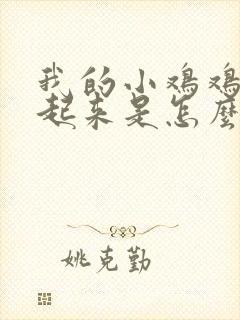 我的小鸡鸡
起来是怎麽
姚克勤